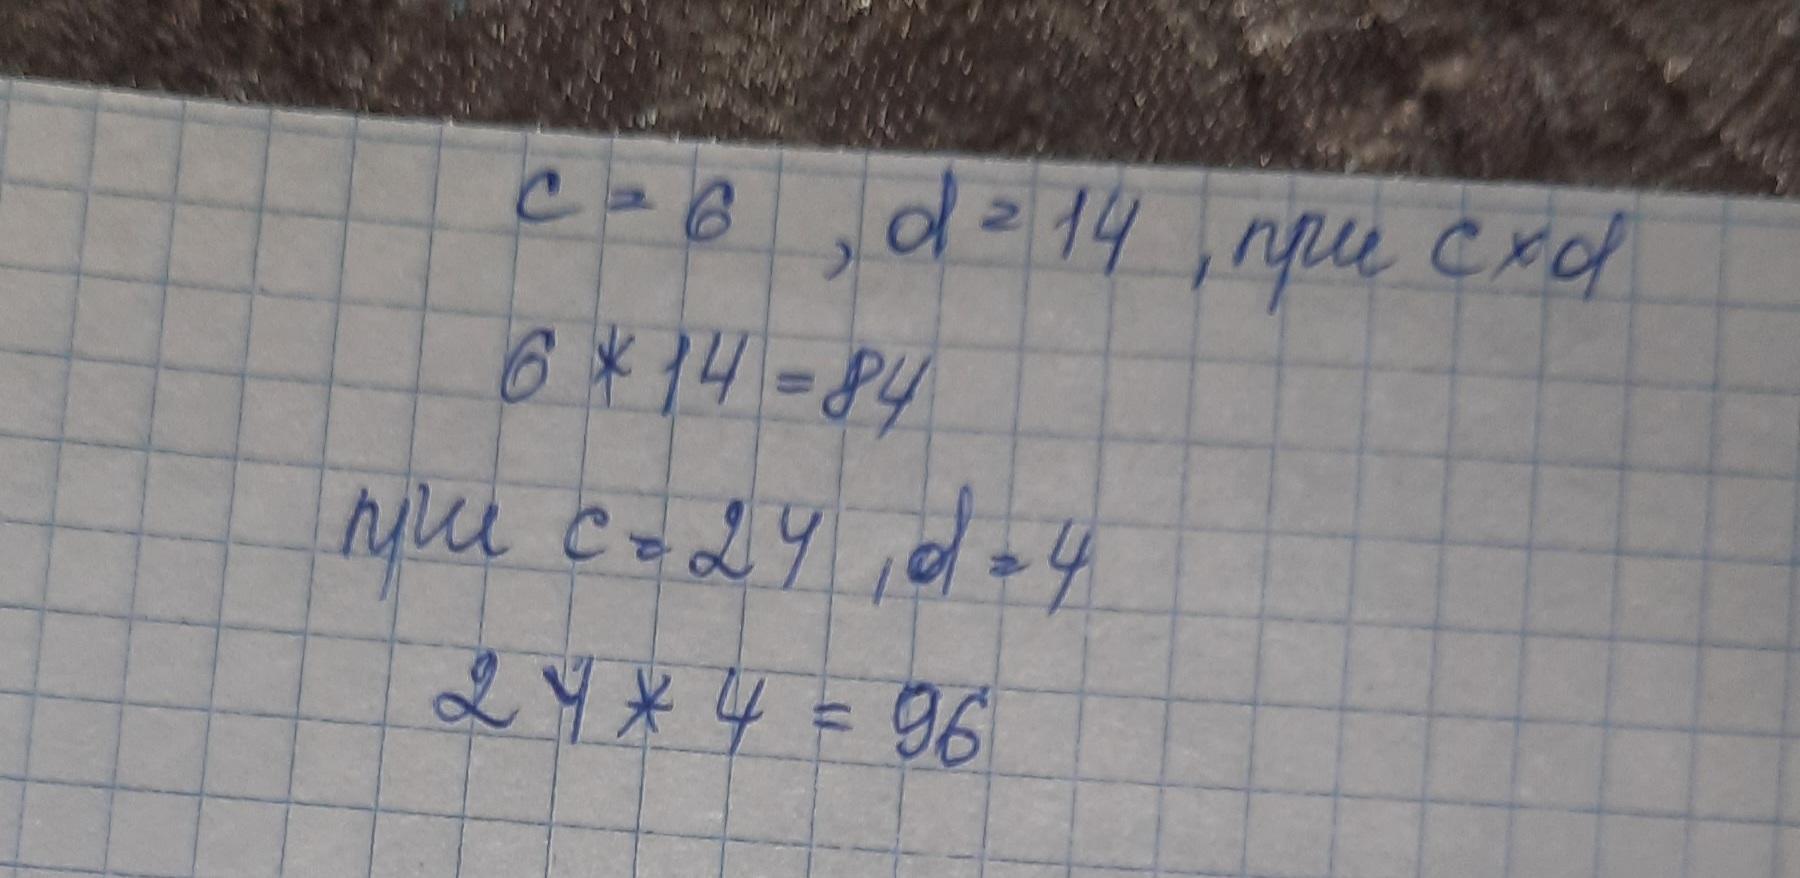 c = 6, d = 14, при c x d
6 * 14 = 84
при c = 24, d = 4
24 * 4 = 96